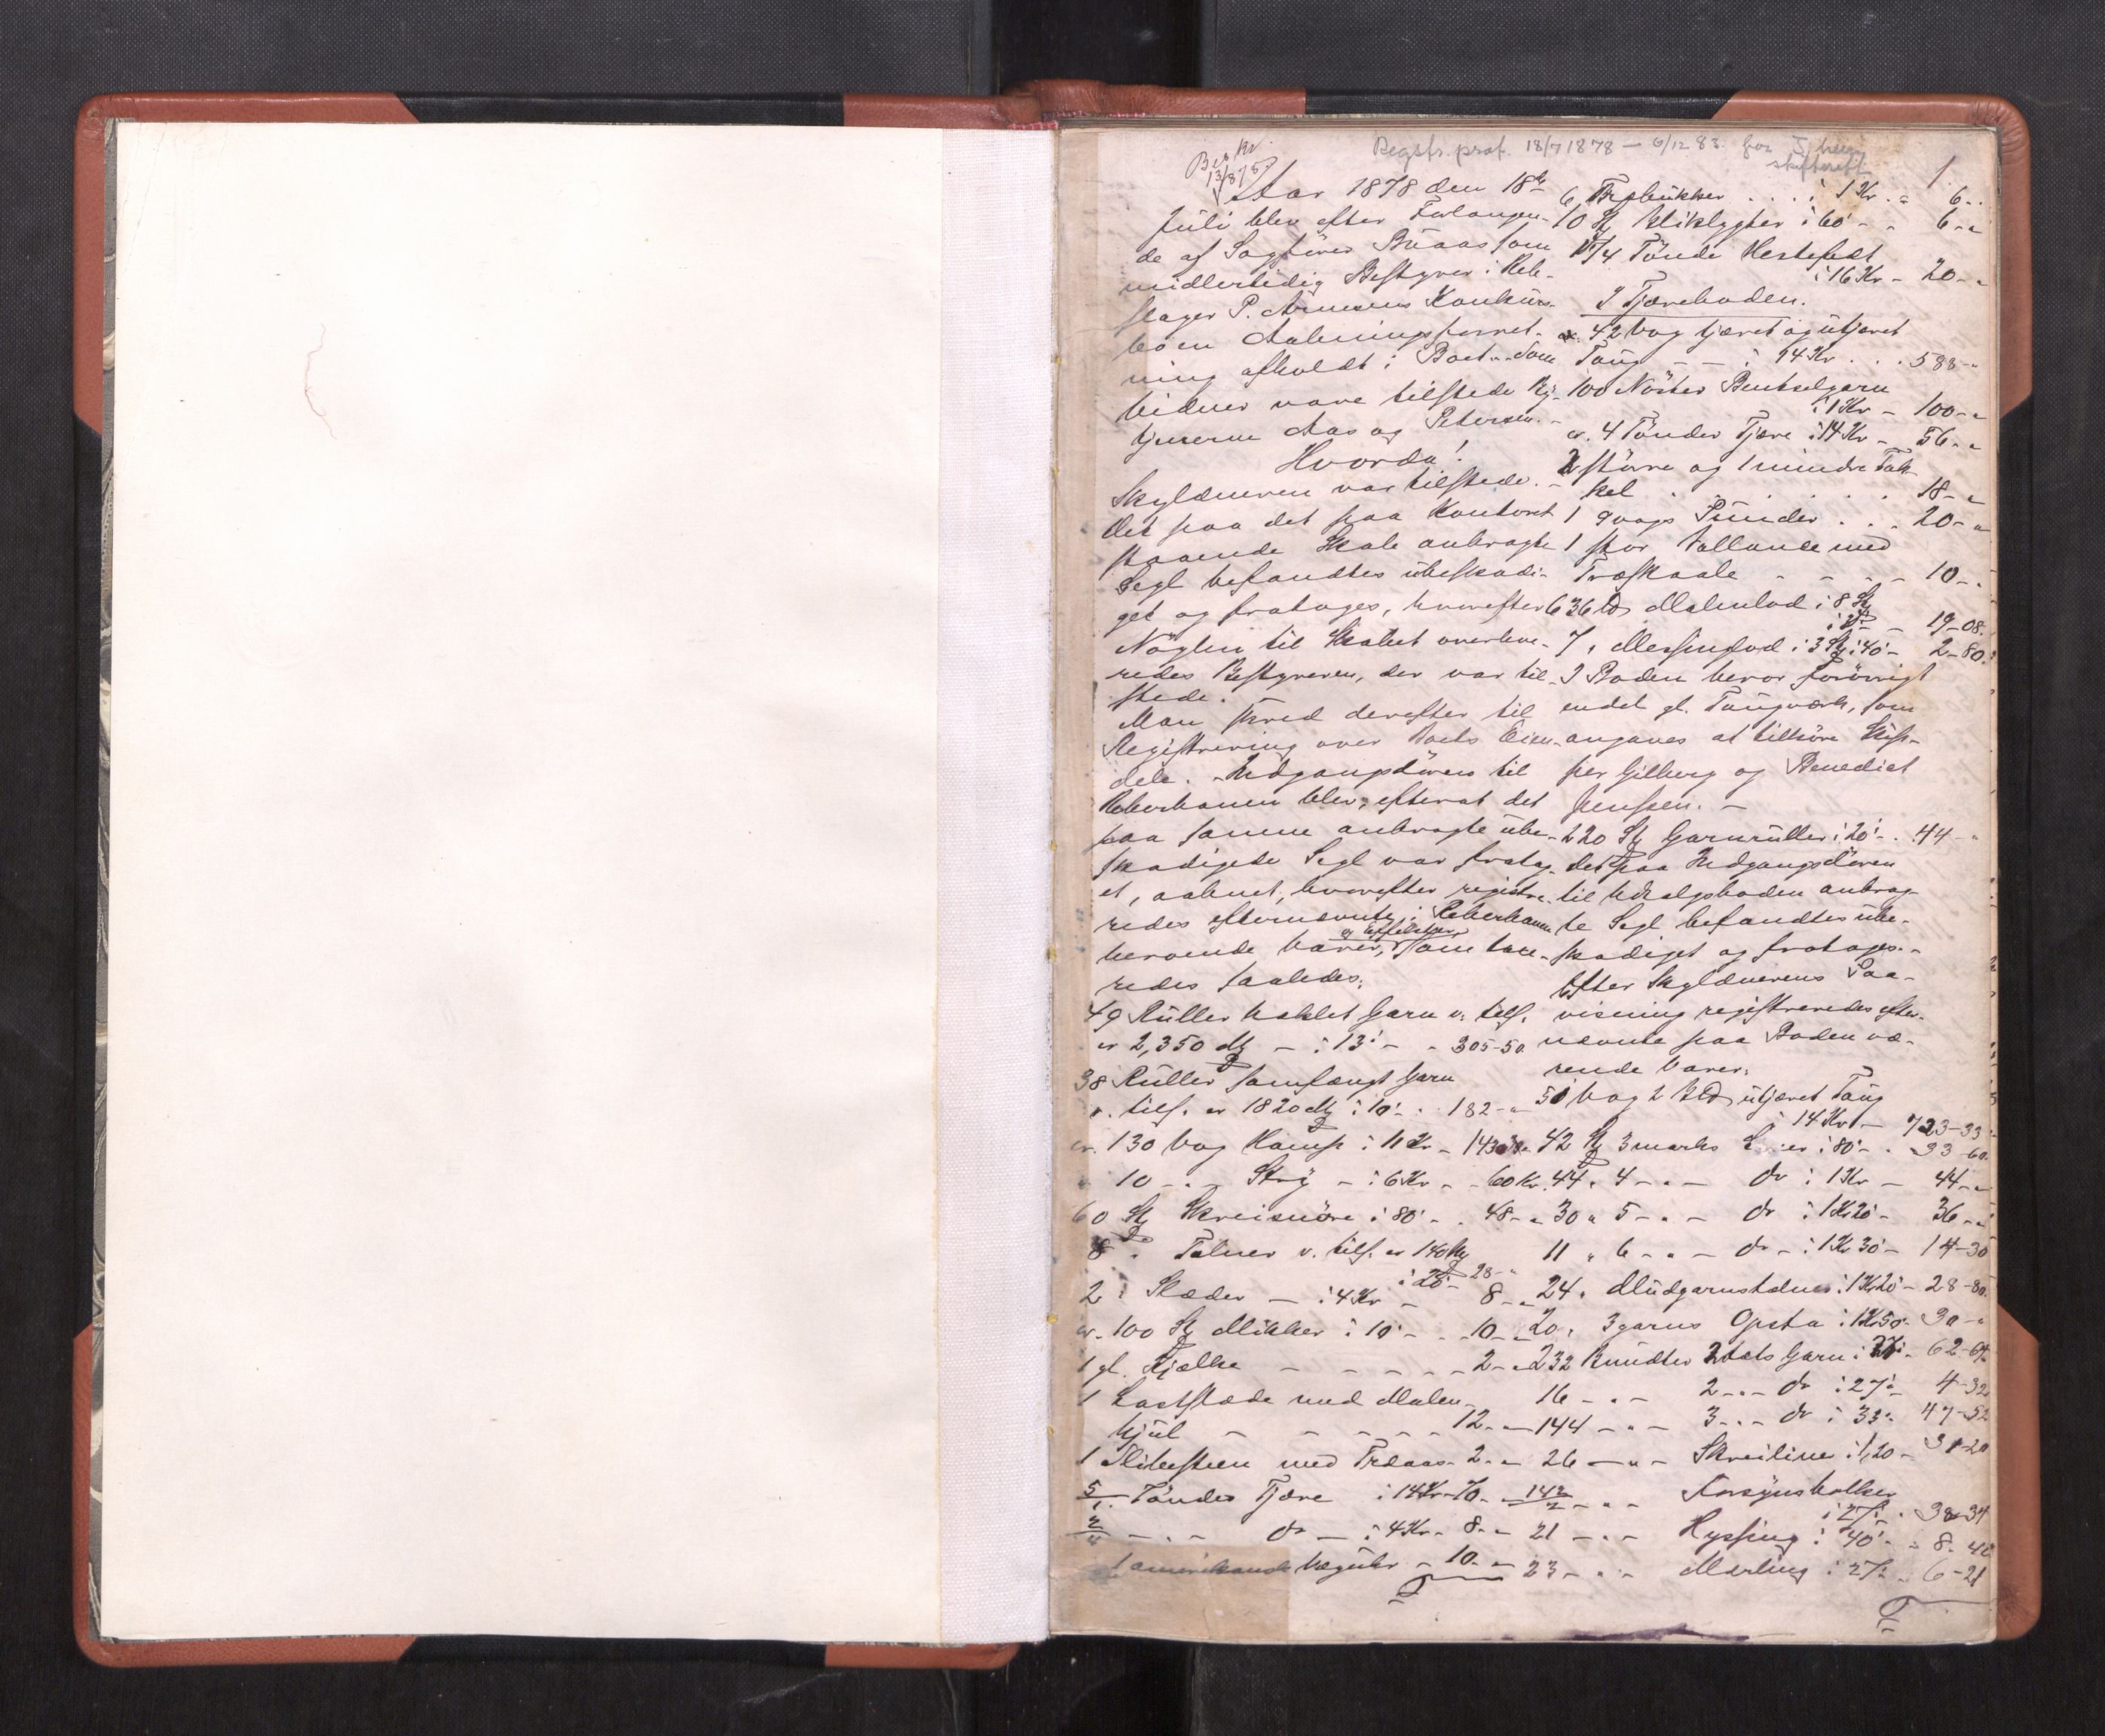 Regstr. prot. 18/7 1878 — 6/12 83. for
skifterett
1.
Besk.
13/8 78
Aar 1878 den 18de
Juli blev efter Forlangen-
de af Sagfører Buaas som
midlertidig Bestyrer i Reb-
slager P. Arnesens Konkurs-
bo en Aabningsforret-
ning afholdt i Boet. Som
Vidner vare tilstede
tjenerne Aas og Petersen. -
Hvorda!
Skyldneren var tilstede. -
Det paa det paa Kontoret
staaende Skab anbragte
Segl befandtes ubeskadi-
get og fratoges, hvorefter
Nøglen til Skabet overleve-
redes Bestyreren, der var til-
stede.
Man skred derefter til
Registrering over Boets Eien-
dele. - Indgangsdøren til
Reberbanen blev, efterat det
paa samme anbragte ube-
skadigede Segl var fratag-
et, aabnet, hvorefter registre-
redes efternævnte i Reberbanen
beroende Varer, og Effekter som taxe-
redes saaledes:
49 Ruller heklet Garn v: tils.
er 2,350 - i 13' - - 305-50
38 Ruller Garn
v. tils. er 1820 i 10' - 182 - "
130 Vog Hamp i 11 Kr -
10 - " - Stry - i 6 Kr - - 60 Kr.
60 St Skreisnøre i 80' - . 48 - "
8 " Tolner v. tils. er 140
i 20' 28 - "
2 " Slæder - i 4 Kr - 8 - "
100 St Mikker i 10' - . . 10 - "
1 gl. Kjælke - - - - - 2 - "
1 Lastslæde med
Hjul - - - - - 12 - "
1 Slibesteen med Trækasse 2 - "
5/1 Tønder Tjære i 14 Kr - 70 - "
2/4 - " - do - i 4 Kr - 8 - "
1 amerikansk Væguhr - 10 - "
6 . . . . i 1 Kr . " 6 - "
10 St Bliklygter i 60' - - 6 - "
5/4 Tønde Hestefedt
i 16 Kr - 20 - "
I Tjæreboden.
42 Vog tjæret og utjæret
Toug - - i 14 Kr . . . 588 - "
100 Nøster Bentselgarn
i 1 Kr - 100 - "
4 Tønder Tjære i 14 Kr - 56 - "
2 større og 1 mindre Tak-
kel . . . . . . . . 18 - "
1 9 vogs Punder . . . 20 - "
1 stor Vallance med
Træskaale - - - - - 10 - "
636 Malmlod i 8
- 19 - 08.
7 " Messinglod i 3 i 40' - 2 - 80.
I Boden beror forøvrigt
endel gl. Tougværk, som
angaves at tilhøre Skip-
per Gilberg og Benedict
Jenssen. -
220 St Garnruller i 20' - . 44 - "
Det paa Indgangsdøren
til Udsalgsboden anbrag-
te Segl befandtes ube-
skadiget og fratoges. -
Efter Skyldnerens Paa-
visning registreredes efter-
nævnte paa Boden væ-
rende Varer:
51 Vog 2 utjæret Toug
i 14 Kr - 723-33
42 St 3 marks i 80' - . 33-60
44 " 4 - " - do i 1 Kr - 44 - "
30 " 5 - " - do i 1 Kr 20' - 36 - "
11 " 6 - " - do - i 1 Kr 30' - 14-30
24 " i 1 Kr 20' - 28-80
20 " 3 garns Opsta i 1 Kr 50' 30 - "
232 Bundter 2 tots Garn i 27' - 62-64
16 - " - 2 - " - do i 27' - 4-32
144 - " - 3 - " - do i 33' - 47-52
26 - " - Skreiline i 1,20 - 31-20
142/2 - " -
i 27' - . 38-34
21 - " - Hyssing i 40' - - 8-40
23 - " - Merling i 27' - 6-21